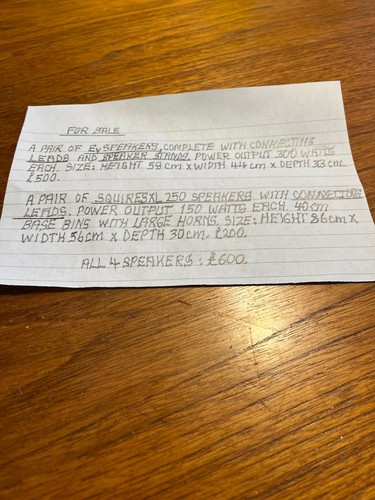 FOR SALE
A PAIR OF EV SPEAKERS, COMPLETE WITH CONNECTING
LEADS AND SPEAKER STANDS. POWER OUTPUT 300 WATTS
EACH. SIZE: HEIGHT 59 cm x WIDTH 44 cm x DEPTH 33 cm
£500.
A PAIR OF SQUIRESXL 250 SPEAKERS WITH CONNECTING
LEADS. POWER OUTPUT 150 WATTS EACH. 40 cm
BASE BINS WITH LARGE HORNS. SIZE: HEIGHT 86 cm x
WIDTH 56 cm x DEPTH 30 cm. £200.
ALL 4 SPEAKERS: £600.